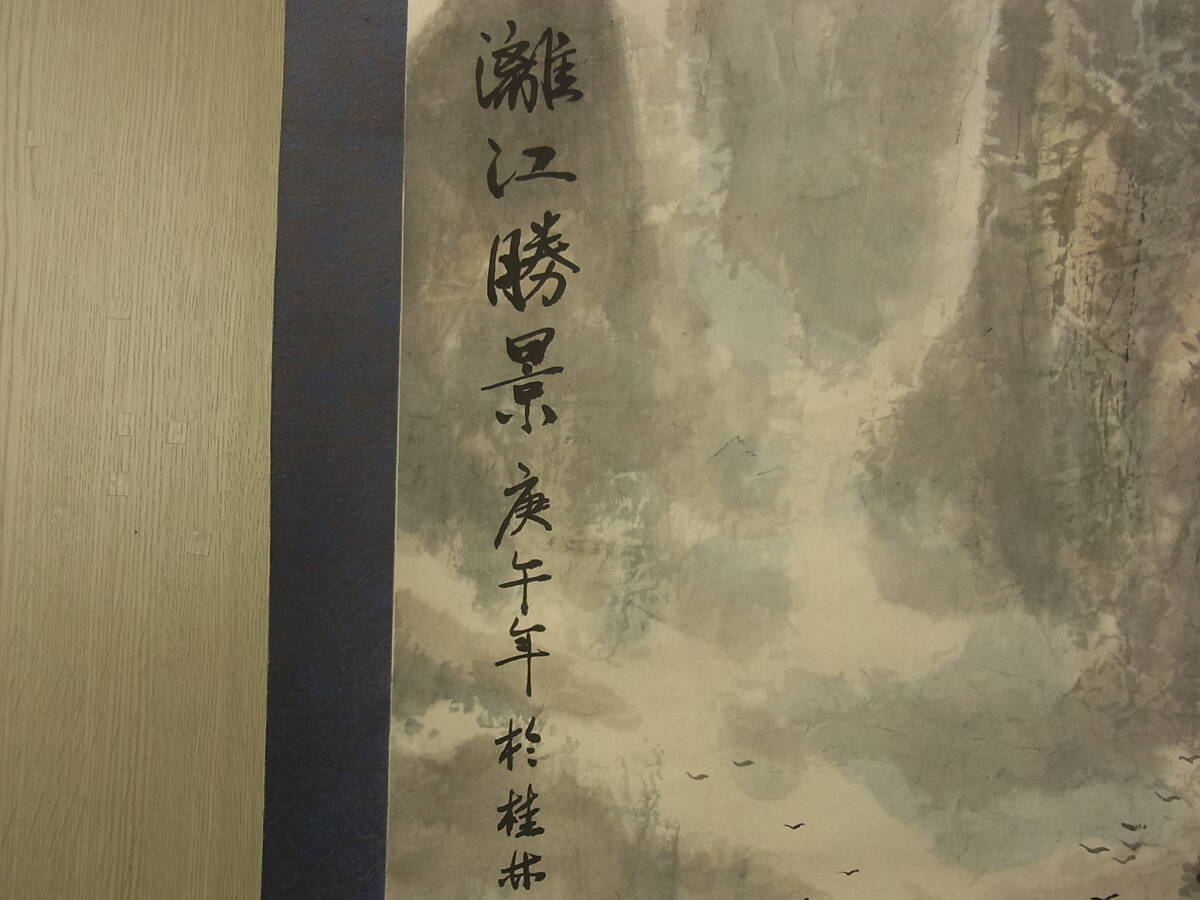 灕江勝景庚午年於桂林